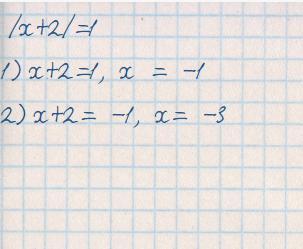 |x+2|=1
1) x+2=1, x = -1
2) x+2= -1, x= -3